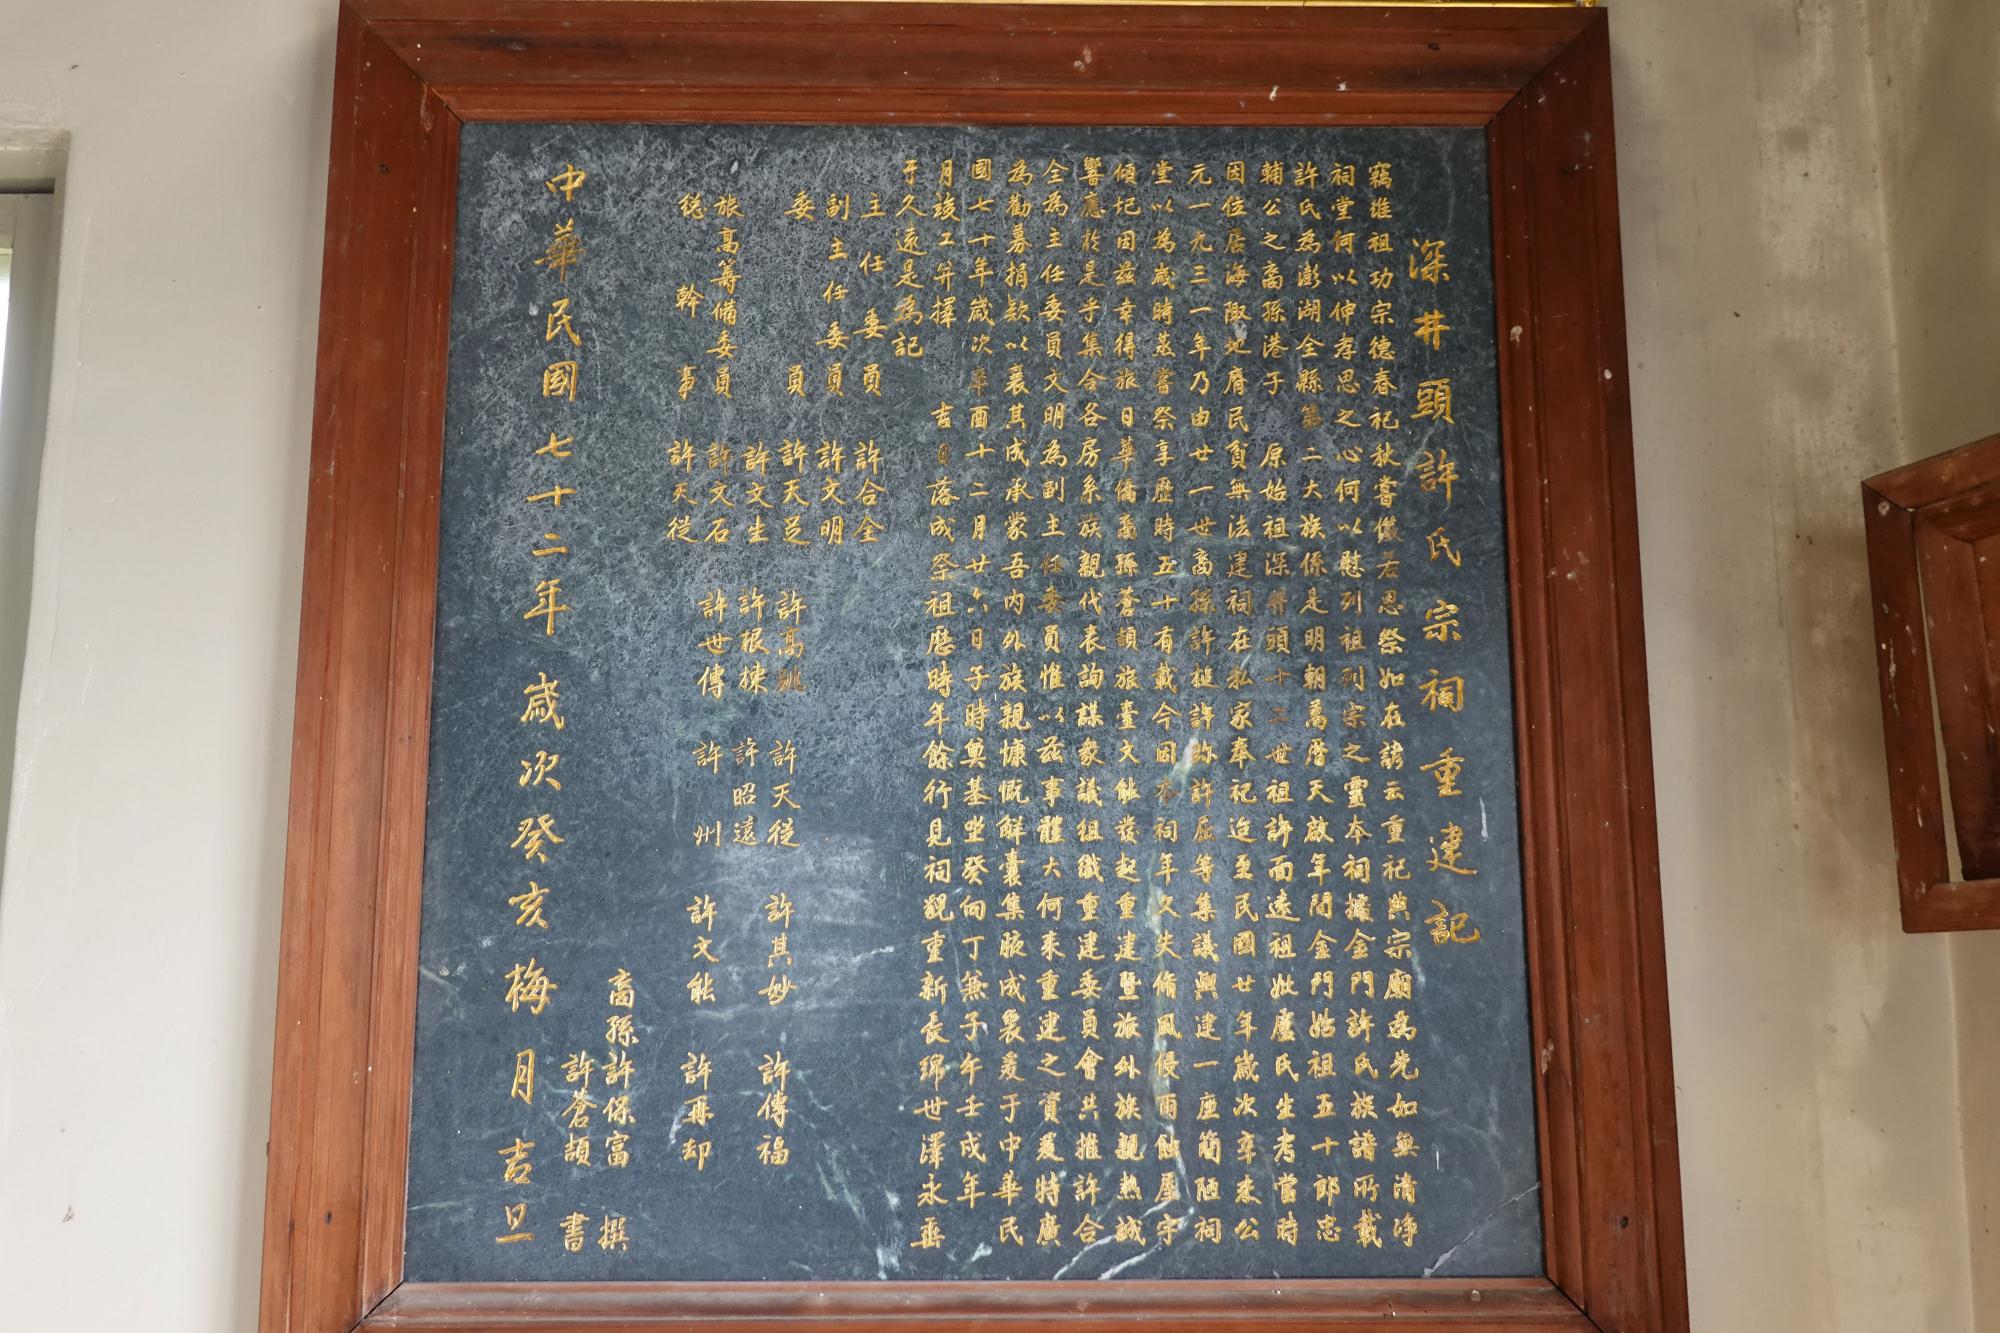 深井頭許氏宗祠重建記
竊維祖功宗德春祀秋嘗儼若思祭如在諺云重祀典宗廟為先如無清淨
祠堂何以伸孝思之心何以慰列祖列宗之靈本祠據金門許氏族譜所載
許氏為澎湖全縣第二大族係是明朝萬曆天啟年間金門始祖五十郎忠
輔公之裔孫港子 原始祖深井頭十二世祖許面遠祖妣盧氏生考當時
因位居海陬地瘠民貧無法建祠在私家奉祀迨至民國廿年歲次辛未公
元一九三一年乃由廿一世裔孫許挺許跡許屈等集議興建一座簡陋祠
堂以為歲時蒸嘗祭享歷時五十有載今因本祠年久失脩風侵雨蝕屋宇
傾圮因茲幸得旅日華僑裔孫蒼頡旅臺文能發起重建暨旅外族親熱誠
響應於是乎集合各房系族親代表詢謀衆議組織重建委員會共推許合
全為主任委員文明為副主任委員惟以茲事體大何來重建之資爰特廣
為勸募捐欵以襄其成承蒙吾內外族親慷慨解囊集腋成裘爰于中華民
國七十年歲次辛酉十二月廿六日子時奠基坐癸向丁兼子午壬戌年
月竣工并擇 吉日落成祭祖歷時年餘行見祠貌重新長綿世澤永垂
于久遠是為記
主任委員 許合全
副主任委員 許文明
委員 許天足 許高跳 許天從 許其妙 許傳福
許文生 許根棟 許昭遠
旅高籌備委員 許文石 許世傳 許州 許文能 許再却
總幹事 許天從
裔孫許保富 撰
許蒼頡 書
中華民國七十二年歲次癸亥梅月吉旦